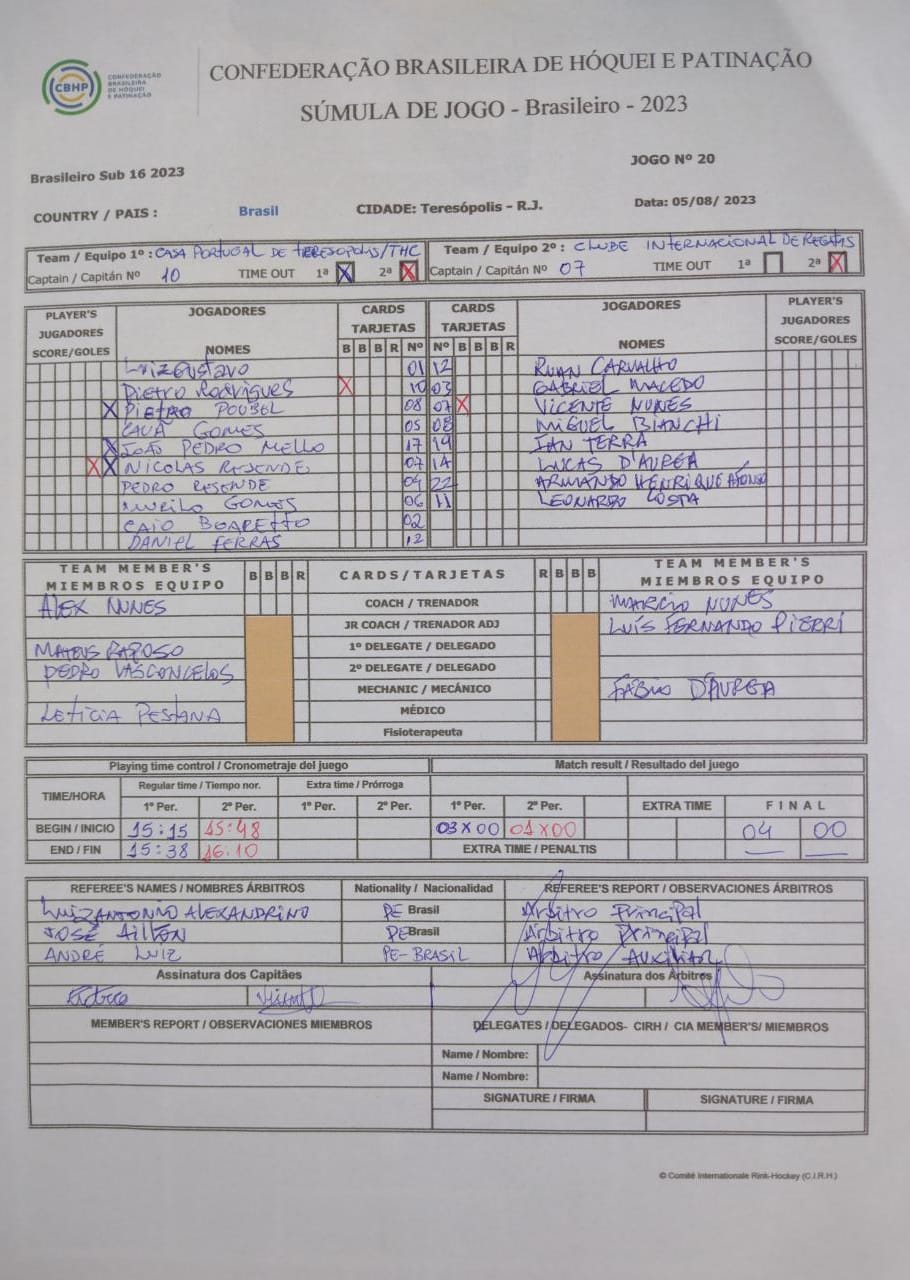 CBHP CONFEDERAÇÃO BRASILEIRA DE HÓQUEI E PATINAÇÃO
CONFEDERAÇÃO BRASILEIRA DE HÓQUEI E PATINAÇÃO
SÚMULA DE JOGO - Brasileiro - 2023
JOGO Nº 20
Brasileiro Sub 16 2023
COUNTRY / PAIS : Brasil CIDADE: Teresópolis - R.J. Data: 05/08/ 2023
Team / Equipo 1º : CASA PORTUGAL DE TERESOPOLIS/THC Team / Equipo 2º : CLUBE INTERNACIONAL DE REGATAS
Captain / Capitán Nº 10 TIME OUT 1ª X 2ª X Captain / Capitán Nº 07 TIME OUT 1ª 2ª X
PLAYER'S JOGADORES CARDS CARDS JOGADORES PLAYER'S
JUGADORES TARJETAS TARJETAS JUGADORES
SCORE/GOLES NOMES B B B R Nº Nº B B B R NOMES SCORE/GOLES
Luiz Gustavo 01 12 RUAN CARVALHO
Pietro Rodrigues X 10 03 GABRIEL MACEDO
X PIETRO POUBEL 08 07 X VICENTE NUNES
CAUÃ GOMES 05 08 MIGUEL BIANCHI
X JOÃO PEDRO MELLO 17 19 IAN TERRA
X X NICOLAS RESENDE 07 14 LUCAS D'AUREA
PEDRO RESENDE 04 22 ARMANDO HENRIQUE AFONSO
MURILO GOMES 06 11 LEONARDO COSTA
CAIO BOARETTO 02
DANIEL FERRAS 12
TEAM MEMBER'S MIEMBROS EQUIPO B B B R CARDS/TARJETAS R B B B TEAM MEMBER'S MIEMBROS EQUIPO
ALEX NUNES COACH / TRENADOR MARCIO NUNES
JR COACH / TRENADOR ADJ LUÍS FERNANDO PIERRI
MATEUS RAPOSO 1º DELEGATE / DELEGADO
PEDRO VASCONCELOS 2º DELEGATE / DELEGADO
MECHANIC / MECÁNICO FÁBIO D'AUREA
LETICIA PESTANA MÉDICO
Fisioterapeuta
Playing time control / Cronometraje del juego Match result / Resultado del juego
TIME/HORA Regular time / Tiempo nor. Extra time / Prórroga
1º Per. 2º Per. 1º Per. 2º Per. 1º Per. 2º Per. EXTRA TIME FINAL
BEGIN / INICIO 15:15 15:48 03 X 00 01 X 00 04 00
END / FIN 15:38 16.10 EXTRA TIME / PENALTIS
REFEREE'S NAMES / NOMBRES ÁRBITROS Nationality / Nacionalidad REFEREE'S REPORT / OBSERVACIONES ÁRBITROS
LUIZ ANTONIO ALEXANDRINO PE Brasil Árbitro Principal
JOSÉ AILTON PE Brasil Árbitro Principal
ANDRÉ LUIZ PE-BRASIL Árbitro AUXILIAR
Assinatura dos Capitães Assinatura dos Árbitros
MEMBER'S REPORT / OBSERVACIONES MIEMBROS DELEGATES / DELEGADOS- CIRH / CIA MEMBER'S/ MIEMBROS
Name / Nombre:
Name / Nombre:
SIGNATURE / FIRMA SIGNATURE / FIRMA
© Comité Internationale Rink-Hockey (C.I.R.H.)